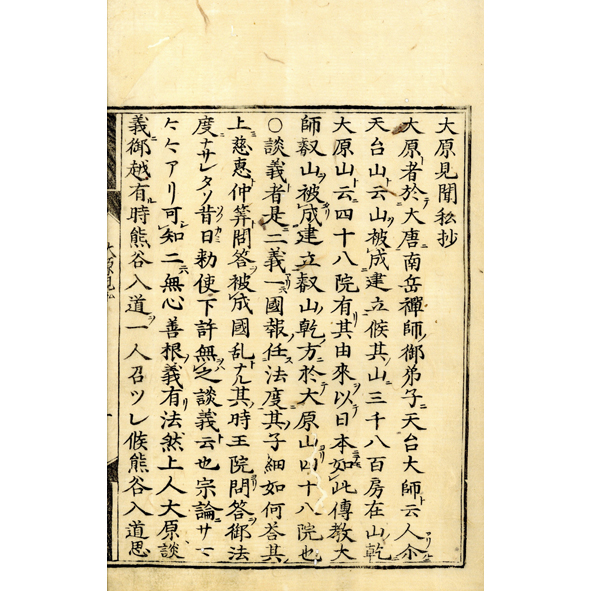 大原見聞私抄
大原者於大唐南岳禪師御弟子天台大師云人尒
天台山云山被成建立候其山三千八百房在山乾
大原山云四十八院有其由來以日本如此傳教大
師叡山被成建立叡山乾方於大原山四十八院也
〇談義者是二義一國報任法度其子細如何答其
上慈惠仲筭問答被成國乱ナル其時王院問答御法
度ナサレタソ昔日勅使下許無之談義云也宗論サマ
〱アリ可知二無心善根義有法然上人大原談
義御越有時熊谷入道一人召ツレ候熊谷入道思